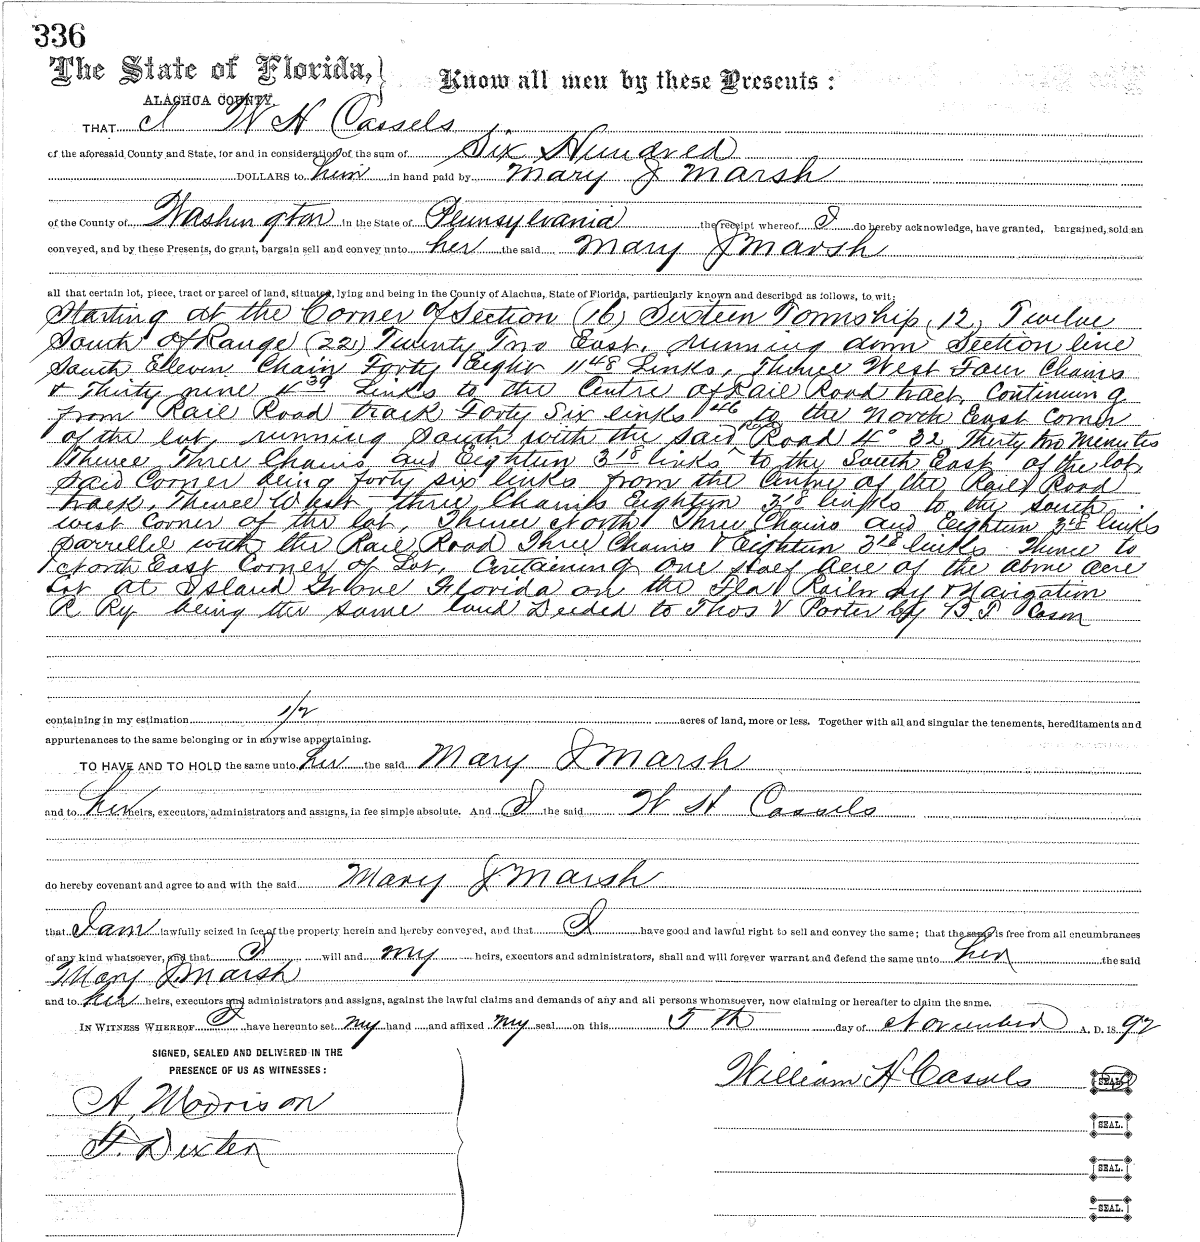 336
The State of Florida,} Know all men by these Presents:
ALACHUA COUNTY.
THAT I W H Cassels
of the aforesaid County and State, for and in consideration of the sum of Six Hundred
DOLLARS to him in hand paid by Mary J Marsh
of the County of Washington in the State of Pennsylvania the receipt whereof I do hereby acknowledge, have granted, bargained, sold and
conveyed, and by these Presents, do grant, bargain sell and convey unto her the said Mary J Marsh
all that certain lot, piece, tract or parcel of land, situated, lying and being in the County of Alachua, State of Florida, particularly known and described as follows, to wit:
Starting at the Corner of Section (16) Sixteen Township (12) Twelve
South of Range (22) Twenty Two East, running down Section line
South Eleven Chain Forty Eight 11 48 Links, Thence West Four Chains
& Thirty nine 4 39 Links to the Centre of Rail Road track, Continuing
from Rail Road track Forty Six links 46 to the North East Corner
of the lot, running South with the said Rail Road 4° 32 Thirty two Menutes
Thence Three Chains and Eighteen 3 18 links to the South East of the lot,
said Corner being forty six links from the Centre of the Rail Road
track, Thence West three Chains Eighteen 3 18 links to the South
west Corner of the lot, Thence North Three Chains and Eighteen 3 18 links
parrellel with the Rail Road Three Chains & Eighteen 3 18 links Thence to
North East Corner of Lot, Containing one Half acre of the above acre
Lot at Island Grove Florida on the Fla Railway & Navigation
R Ry being the same land Deeded to Thos V Porter by B. P Cason
containing in my estimation 1/2 acres of land, more or less. Together with all and singular the tenements, hereditaments and
appurtenances to the same belonging or in anywise appertaining.
TO HAVE AND TO HOLD the same unto her the said Mary J Marsh
and to her heirs, executors, administrators and assigns, in fee simple absolute. And I the said W H Cassels
do hereby covenant and agree to and with the said Mary J Marsh
that I am lawfully seized in fee of the property herein and hereby conveyed, and that I have good and lawful right to sell and convey the same; that the same is free from all encumbrances
of any kind whatsoever, and that I will and my heirs, executors and administrators, shall and will forever warrant and defend the same unto her the said
Mary J Marsh
and to her heirs, executors and administrators and assigns, against the lawful claims and demands of any and all persons whomsoever, now claiming or hereafter to claim the same.
IN WITNESS WHEREOF I have hereunto set my hand and affixed my seal on this 5th day of November A. D. 1892
SIGNED, SEALED AND DELIVERED IN THE
PRESENCE OF US AS WITNESSES:
William H Cassels SEAL.
A, Morrison
SEAL.
F. Dexter
SEAL.
SEAL.